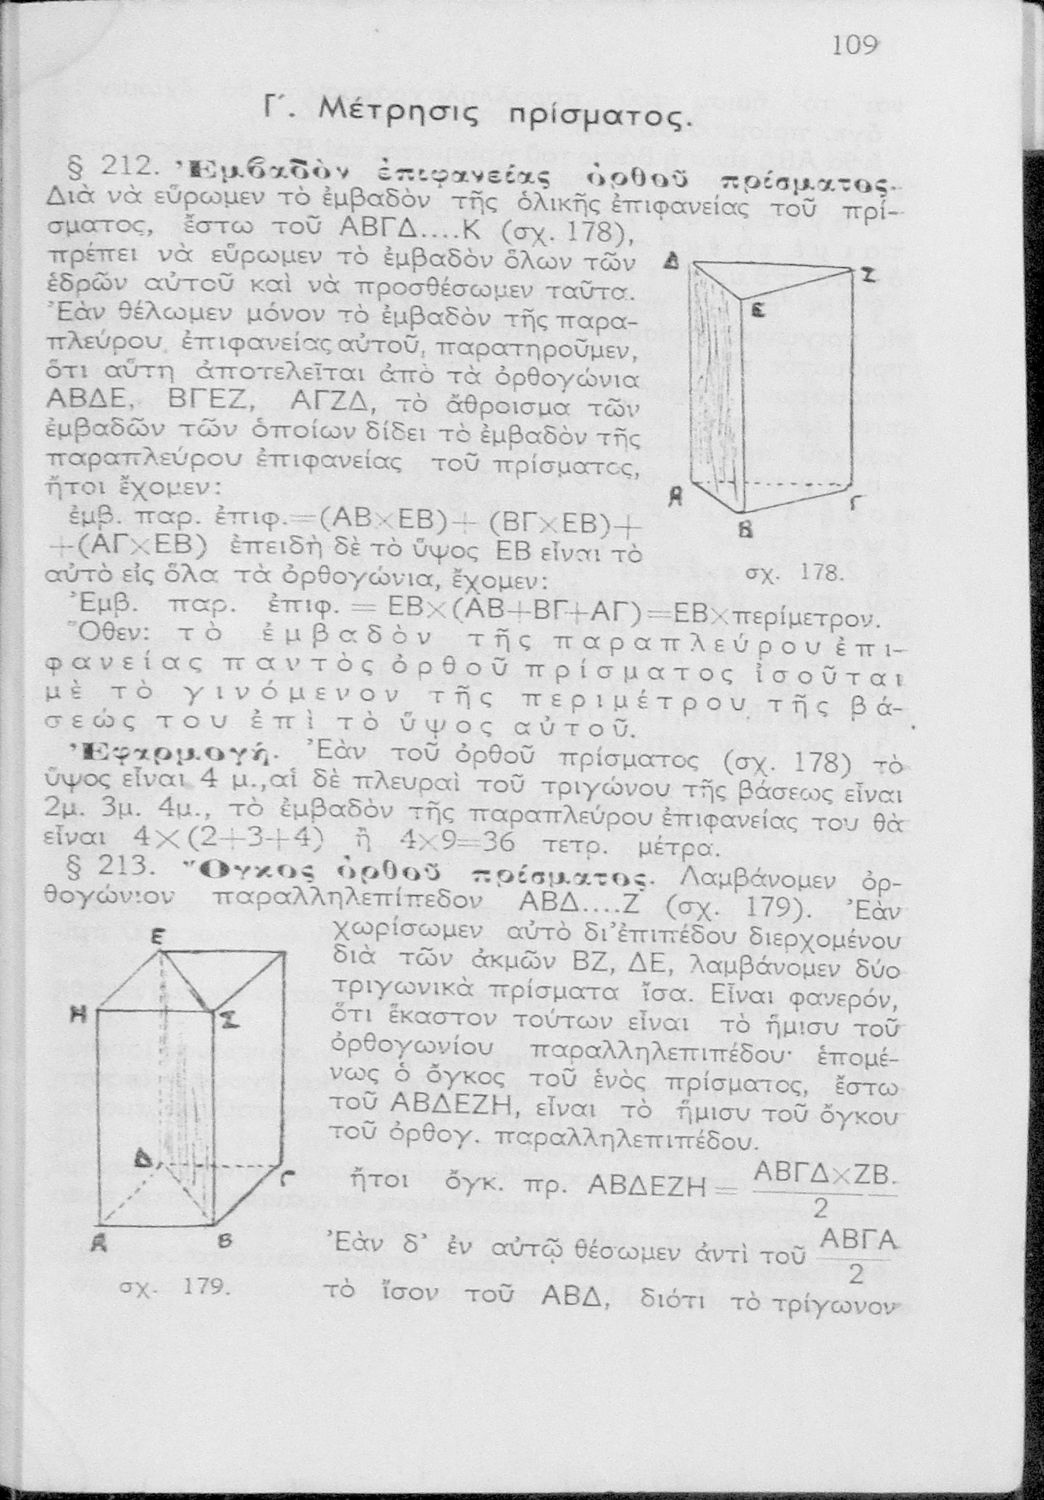 109
Γ΄. Μέτρησις πρίσματος.
§ 212. Ἐμβαδὸν ἐπιφανείας ὀρθοῦ πρίσματος.
Διὰ νὰ εὕρωμεν τὸ ἐμβαδὸν τῆς ὁλικῆς ἐπιφανείας τοῦ πρί-
σματος, ἔστω τοῦ ΑΒΓΔ....Κ (σχ. 178),
πρέπει νὰ εὕρωμεν τὸ ἐμβαδὸν ὅλων τῶν
ἑδρῶν αὐτοῦ καὶ νὰ προσθέσωμεν ταῦτα.
Ἐὰν θέλωμεν μόνον τὸ ἐμβαδὸν τῆς παρα-
πλεύρου ἐπιφανείας αὐτοῦ, παρατηροῦμεν,
ὅτι αὕτη ἀποτελεῖται ἀπὸ τὰ ὀρθογώνια
ΑΒΔΕ, ΒΓΕΖ, ΑΓΖΔ, τὸ ἄθροισμα τῶν
ἐμβαδῶν τῶν ὁποίων δίδει τὸ ἐμβαδὸν τῆς
παραπλεύρου ἐπιφανείας τοῦ πρίσματος,
ἤτοι ἔχομεν:
ἐμβ. παρ. ἐπιφ.=(ΑΒ×ΕΒ)+ (ΒΓ×ΕΒ)+
+(ΑΓ×ΕΒ) ἐπειδὴ δὲ τὸ ὕψος ΕΒ εἶναι τὸ
αὐτὸ εἰς ὅλα τὰ ὀρθογώνια, ἔχομεν:
Δ
Ζ
Ε
Α
Γ
Β
σχ. 178.
Ἐμβ. παρ. ἐπιφ. = ΕΒ×(ΑΒ+ΒΓ+ΑΓ)=ΕΒ×περίμετρον.
Ὅθεν: τὸ ἐμβαδὸν τῆς παραπλεύρου ἐπι-
φανείας παντὸς ὀρθοῦ πρίσματος ἰσοῦται
μὲ τὸ γινόμενον τῆς περιμέτρου τῆς βά-
σεώς του ἐπὶ τὸ ὕψος αὐτοῦ.
Ἐφαρμογή. Ἐὰν τοῦ ὀρθοῦ πρίσματος (σχ. 178) τὸ
ὕψος εἶναι 4 μ.,αἱ δὲ πλευραὶ τοῦ τριγώνου τῆς βάσεως εἶναι
2μ. 3μ. 4μ., τὸ ἐμβαδὸν τῆς παραπλεύρου ἐπιφανείας του θὰ
εἶναι 4×(2+3+4) ἢ 4×9=36 τετρ. μέτρα.
§ 213. Ὄγκος ὀρθοῦ πρίσματος. Λαμβάνομεν ὀρ-
θογώνιον παραλληλεπίπεδον ΑΒΔ....Ζ (σχ. 179). Ἐὰν
χωρίσωμεν αὐτὸ δι᾿ἐπιπέδου διερχομένου
διὰ τῶν ἀκμῶν ΒΖ, ΔΕ, λαμβάνομεν δύο
τριγωνικὰ πρίσματα ἴσα. Εἶναι φανερόν,
ὅτι ἕκαστον τούτων εἶναι τὸ ἥμισυ τοῦ
ὀρθογωνίου παραλληλεπιπέδου· ἑπομέ-
νως ὁ ὄγκος τοῦ ἑνὸς πρίσματος, ἔστω
τοῦ ΑΒΔΕΖΗ, εἶναι τὸ ἥμισυ τοῦ ὄγκου
τοῦ ὀρθογ. παραλληλεπιπέδου.
Ε
Η
Ζ
Δ
Γ
Α
Β
σχ. 179.
ἤτοι ὄγκ. πρ. ΑΒΔΕΖΗ = ΑΒΓΔ×ΖΒ.
2
Ἐὰν δ᾿ ἐν αὐτῷ θέσωμεν ἀντὶ τοῦ ΑΒΓΑ
2
τὸ ἴσον τοῦ ΑΒΔ, διότι τὸ τρίγωνον